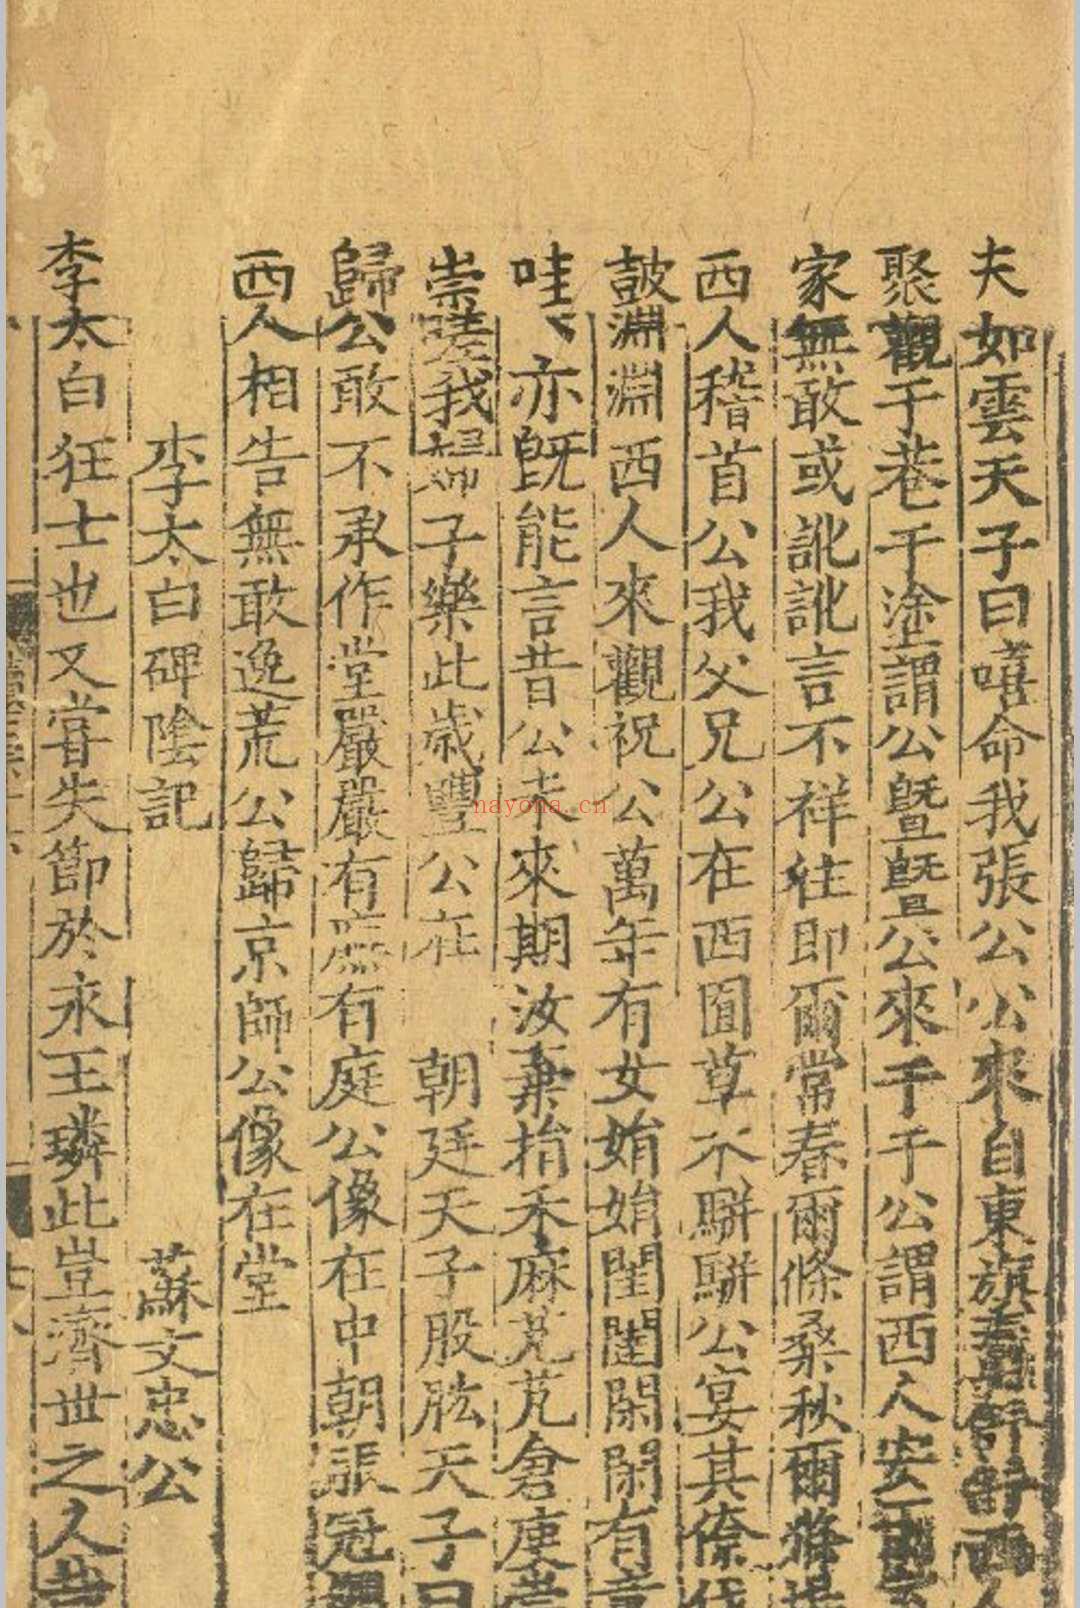 夫如雲天子曰嘻命我張公公來自東旗纛舒舒西人
聚觀于巷于塗謂公曁曁公來于于公謂西人安
家無敢或訛訛言不祥往即爾常春爾條桑秋爾滌場
西人稽首公我父兄公在西囿草木駢駢公宴其僚伐
鼓淵淵西人來觀祝公萬年有女娟娟閨闥閑閑有童
哇〻亦旣能言昔公未來期汝棄捐禾麻芃芃倉庾崇
崇嗟我婦子樂此歲豐公在 朝廷天子股肱天子曰
歸公敢不承作堂嚴嚴有廡有庭公像在中朝服冠纓
西人相告無敢逸荒公歸京師公像在堂
李太白碑陰記 蘇文忠公
李太白狂士也又嘗失節於永王璘此豈濟世之人哉
nayona.cn